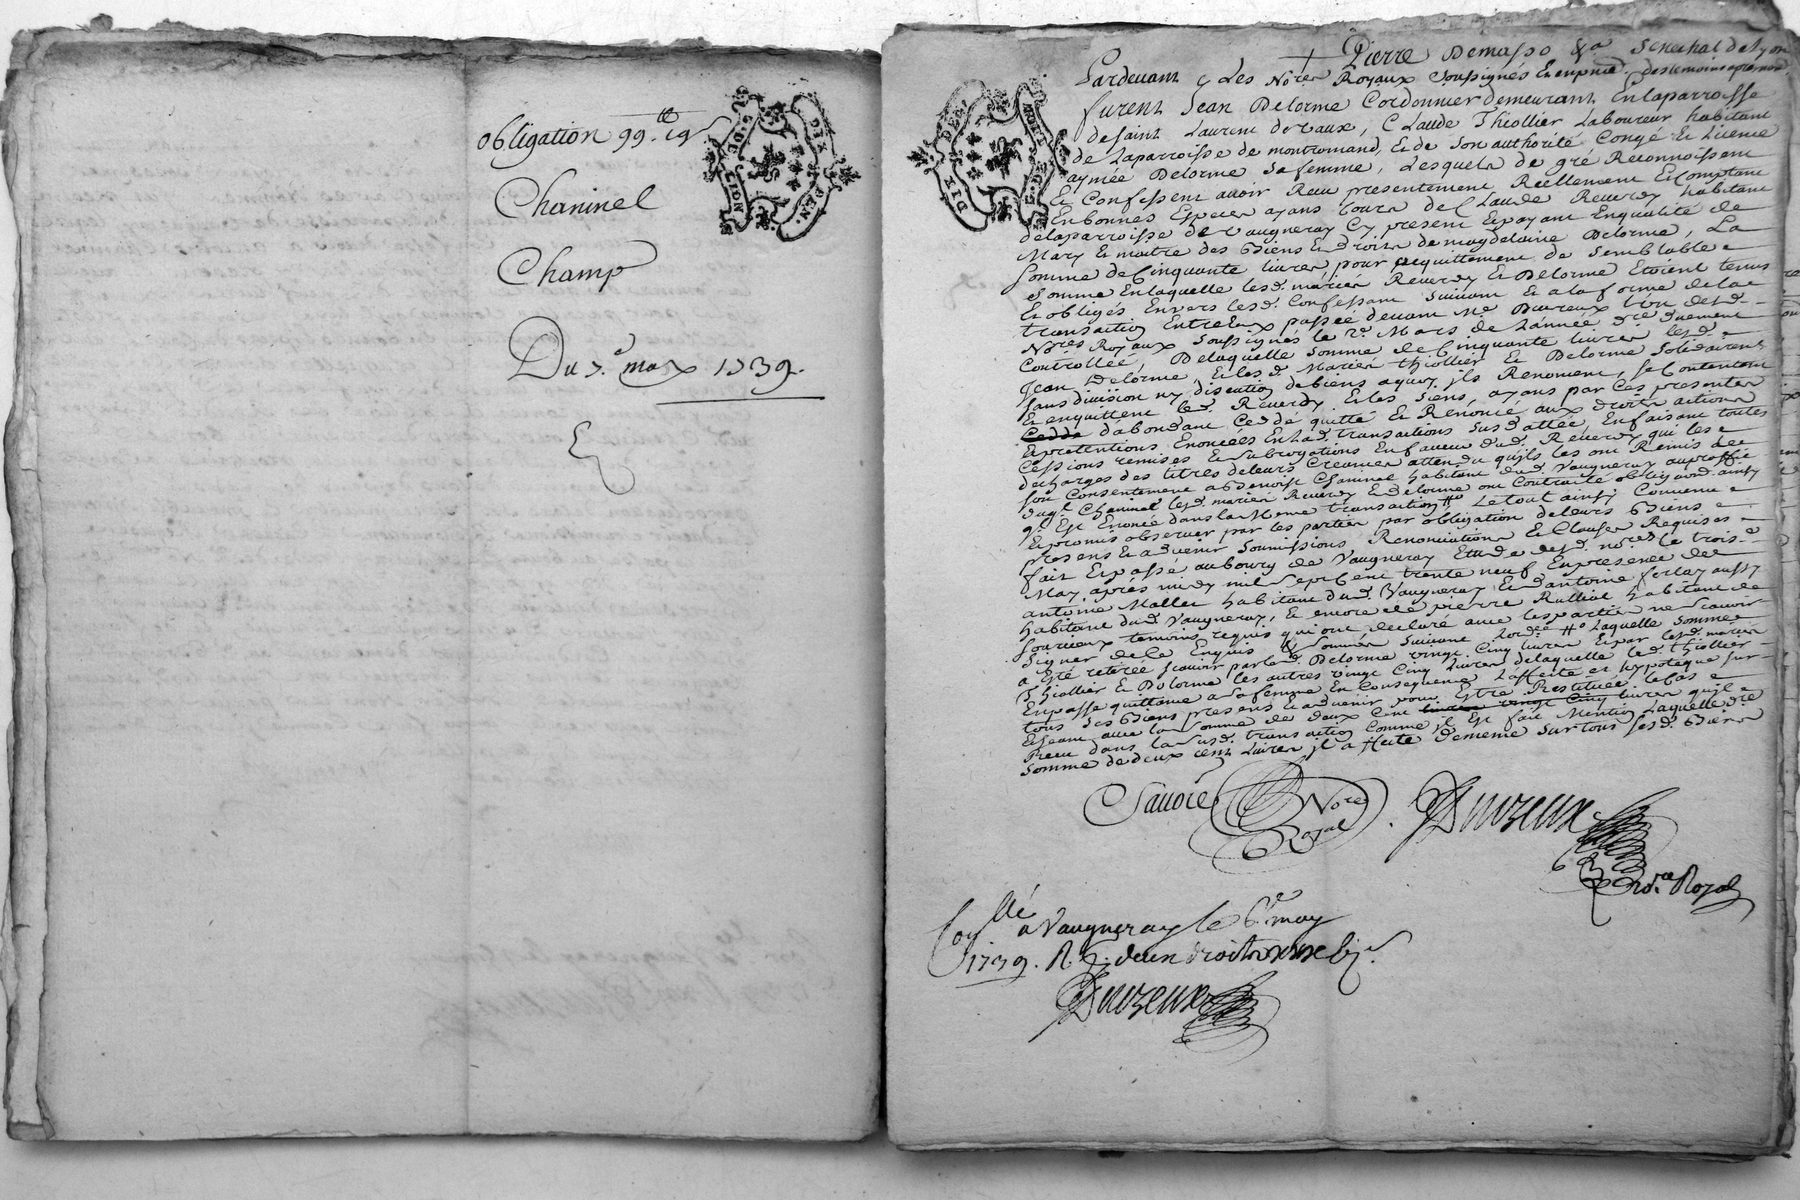 obligation 99.tt 19 s
Chaninel
Champ
Du 7.e mars 1739.
G. DE LION
DIX DEN
Pierre Demasso &a Senechal de Lyon
Pardevant les No.res Royaux soussignés En presence des temoins apres nommés
furent Jean Delorme Cordonnier demeurant En laparroisse
de saint Laurent de vaux, Claude Thiollier Laboureur habitant
de Laparroisse de montromand, et de son authorité Congé et Licence
aymée Delorme sa femme, Lesquels de gré Reconnoissent
Et Confessent avoir Receu presentement Reellement Et Comptant
En bonnes Especes ayans cours de Claude Reverdy habitant
delaparroisse de Vaugneray Cy present Et payant Enqualité de
Mary Et maitre des Biens Et droits de magdelaine Delorme, La
somme de Cinquante livres pour acquittement de semblable
somme Enlaquelle lesd. mariés Reverdy Et Delorme Etoient tenus
Et obligés Envers lesd. Confessant suivant Et a la forme dela
transaction Entreux passée devant Me Duvzeux L'un desd.
No.res Royaux soussignés le 2e Mars de Lannée d.re duement
Controllée, Delaquelle somme de Cinquante livres lesd.
Jean Delorme, Et lesd. Mariés Thiollier Et Delorme solidairemt
sans division ny discution de biens aquoy ils Renoncent, se Contentent
Et enquittent led. Reverdy Et les siens, ayans par Ces presentes
dabondant Cedé quitté Et Renoncé aux droits actions
Et pretentions Enoncées En lad. transaction susdattée, En faisant toutes
Cessions remises Et subrogations En faveur dud. Reverdy qui les
decharges des titres de leurs Creances attendu quils les ont Remis de
son Consentement a Benoist Chaninel habitant dud. Vaugneray au proffit
duql. Chaninel lesd. mariés Reverdy Et delorme ont Contracté obligaon. ainsy
ql. Est Enoncé dans la meme transaction # Le tout ainsy Convenu
Et promis observer par les parties par obligation de leurs Biens
presens Et advenir soumissions Renonciations Et Clauses Requises
fait Et passé au bourg de Vaugneray Etude desd. no.res Le trois.e
May après midy mil sept Cent trente neuf En presence de
antoine Mallet habitant dud. Vaugneray Et dantoine ferlay aussy
habitant dud. Vaugneray, Et encore de pierre Rulliat habitant de
sourcieux temoins requis qui ont declaré avec les parties ne scavoir
signer de ce Enquis Et sommés suivant Lord.ce # Laquelle somme
a Eté retirée scavoir par led. Delorme vingt Cinq livres Et par lesd. mariés
Thiollier Et Delorme les autres vingt Cinq livres delaquelle led. Thiollier
En passe quittance a sa femme En Consequence Laffecte et hypoteque sur
tous ses Biens presens Et advenir pour Estre Restituée le Cas
Echeant avec la somme de deux Cent livres quil a
Receu dans la susd. transaction Comme il Est fait Mention Laquelle d.re
somme de deux cent Livres il affecte demême sur tous sesd. Biens
DIX DEN
G. DE LION
Savoie No.re Royal
Duvzeux
No.re Royal
Con.llé a Vaugneray le 6.e may
1739. R
Duvzeux